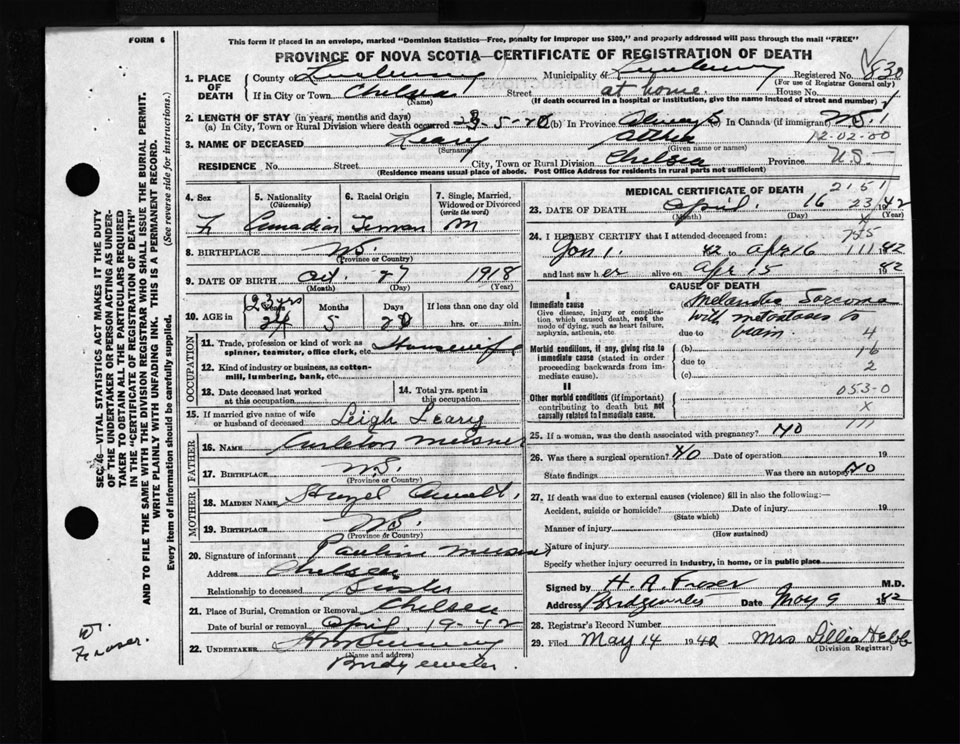 FORM 6
This form if placed in an envelope, marked "Dominion Statistics—Free, penalty for improper use $300," and properly addressed will pass through the mail "FREE"
PROVINCE OF NOVA SCOTIA—CERTIFICATE OF REGISTRATION OF DEATH
1. PLACE OF DEATH County of Lunenburg Municipality of Lunenburg Registered No. 830
(For use of Registrar General only)
If in City or Town Chelsea Street at home House No.
(Name) (If death occurred in a hospital or institution, give the name instead of street and number)
2. LENGTH OF STAY (in years, months and days)
(a) In City, Town or Rural Division where death occurred 23-5-20 (b) In Province Always (c) In Canada (if immigrant)
12-02-00
3. NAME OF DECEASED Leary
(Surname) (Given name or names)
RESIDENCE No. Street City, Town or Rural Division Chelsea Province N.S.
(Residence means usual place of abode. Post Office Address for residents in rural parts not sufficient)
4. Sex 5. Nationality (Citizenship) 6. Racial Origin 7. Single, Married, Widowed or Divorced (write the word)
F Canadian German M
8. BIRTHPLACE N.S.
(Province or Country)
9. DATE OF BIRTH Oct. 27 1918
(Month) (Day) (Year)
10. AGE in 23 yrs Years Months Days If less than one day old
24 5 20 hrs. or min.
OCCUPATION
11. Trade, profession or kind of work as spinner, teamster, office clerk, etc. Housewife
12. Kind of industry or business, as cotton-mill, lumbering, bank, etc.
13. Date deceased last worked at this occupation 14. Total yrs. spent in this occupation
15. If married give name of wife or husband of deceased Leigh Leary
FATHER
16. NAME Carleton Meisner
17. BIRTHPLACE N.S.
(Province or Country)
MOTHER
18. MAIDEN NAME Hazel
19. BIRTHPLACE N.S.
(Province or Country)
20. Signature of informant Pauline Meisner
Address Chelsea
Relationship to deceased Sister
21. Place of Burial, Cremation or Removal Chelsea
Date of burial or removal April 19-42
22. UNDERTAKER
(Name and address)
Bridgewater.
MEDICAL CERTIFICATE OF DEATH
2151
23. DATE OF DEATH April 16 23 42
(Month) (Day) (Year)
24. I HEREBY CERTIFY that I attended deceased from:
Jan 1. 42 to Apr 16 1942
and last saw her alive on Apr 15 1942
CAUSE OF DEATH
I
Immediate cause
Give disease, injury or complication, which caused death, not the mode of dying, such as heart failure, asphyxia, asthenia, etc.
Melanotic Sarcoma
with metastases to
due to brain. 4
Morbid conditions, if any, giving rise to immediate cause (stated in order proceeding backwards from immediate cause).
(b) 16
due to 2
(c)
II
Other morbid conditions (if important) contributing to death but not causally related to immediate cause.
053-0
X
25. If a woman, was the death associated with pregnancy? NO
26. Was there a surgical operation? NO Date of operation 19
State findings Was there an autopsy? NO
27. If death was due to external causes (violence) fill in also the following:—
Accident, suicide or homicide? Date of injury 19
(State which)
Manner of injury
(How sustained)
Nature of injury
Specify whether injury occurred in industry, in home, or in public place
Signed by H. A. Fraser M.D.
Address Bridgewater Date May 9 1942
28. Registrar's Record Number
29. Filed May 14 1942 Mrs Lillia Hebb
(Division Registrar)
SEC. —VITAL STATISTICS ACT MAKES IT THE DUTY
OF THE UNDERTAKER OR PERSON ACTING AS UNDER-
TAKER TO OBTAIN ALL THE PARTICULARS REQUIRED
IN THE "CERTIFICATE OF REGISTRATION OF DEATH"
AND TO FILE THE SAME WITH THE DIVISION REGISTRAR WHO SHALL ISSUE THE BURIAL PERMIT.
WRITE PLAINLY WITH UNFADING INK. THIS IS A PERMANENT RECORD.
Every item of information should be carefully supplied. (See reverse side for instructions.)
Fraser.